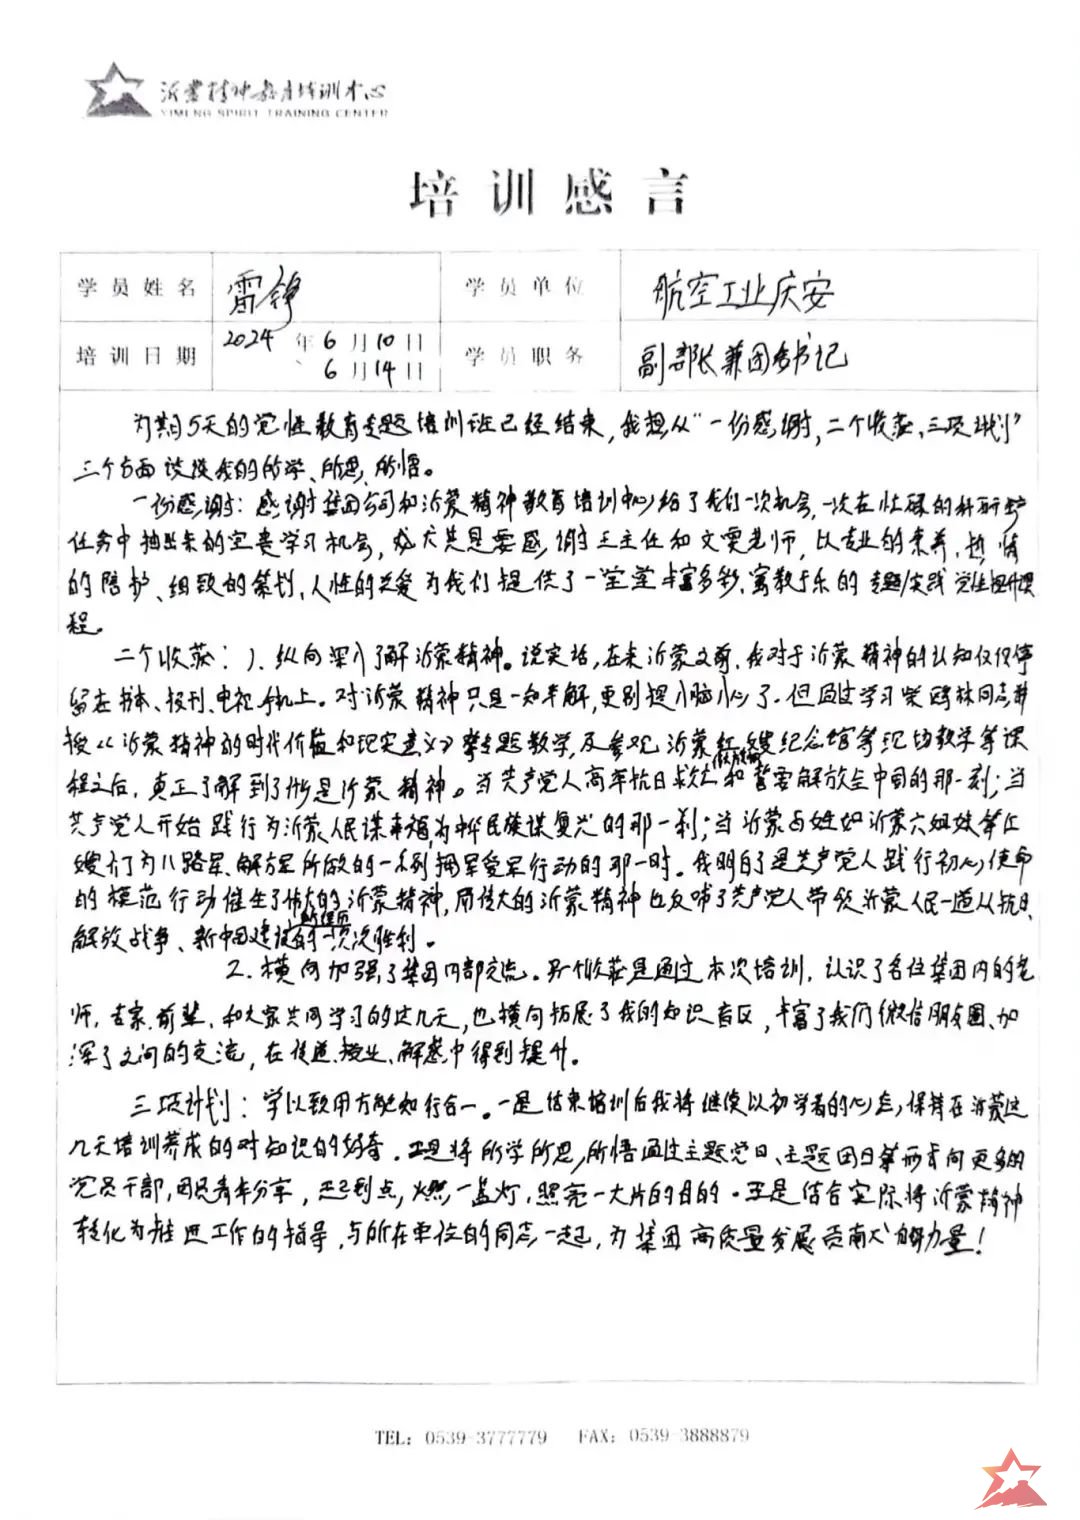 沂蒙精神教育培训中心
YIMENG SPIRIT TRAINING CENTER
培训感言
学员姓名 雷铮 学员单位 航空工业庆安
培训日期 2024年6月10日、6月14日 学员职务 副部长兼团委书记
为期5天的党性教育专题培训班已经结束,我想从“一份感谢,二个收获、三项计划”
三个方面谈谈我的所学、所思、所悟。
一份感谢:感谢集团公司和沂蒙精神教育培训中心给了我们一次机会,一次在忙碌的科研生产
任务中抽出来的宝贵学习机会,尤其是要感谢王主任和文雯老师,以专业的素养、热情
的陪护、细致的策划、人性的关爱为我们提供了一堂堂丰富多彩、寓教于乐的专题/实践党性提升课
程。
二个收获:1、纵向深入了解沂蒙精神。说实话,在来沂蒙之前,我对于沂蒙精神的认知仅仅停
留在书本、报刊、电视、手机上。对沂蒙精神只是一知半解,更别提入脑入心了。但通过学习 林同志讲
授《沂蒙精神的时代价值和现实意义》等专题教学,及参观沂蒙红嫂纪念馆等现场教学等课
程之后,真正了解到了什么是沂蒙精神。当共产党人高举抗日救亡和誓要解放全中国的那一刻;当
共产党人开始践行为沂蒙人民谋幸福,为中华民族谋复兴的那一刻;当沂蒙百姓如沂蒙六姐妹等红
嫂们为八路军、解放军所做的一系列拥军爱军行动的那一时。我明白了是共产党人践行初心使命
的模范行动催生了伟大的沂蒙精神,而伟大的沂蒙精神也反哺了共产党人带领沂蒙人民一道从抗日、
解放战争、新中国建设的一次次胜利。
2、横向加强了集团内部交流。另个收获是通过本次培训,认识了各位集团内的老
师、专家、前辈,和大家共同学习的这几天,也横向拓展了我的知识盲区,丰富了我们微信朋友圈、加
深了之间的交流,在传道、授业、解惑中得到提升。
三项计划:学以致用方能知行合一。一是结束培训后我将继续以初学者的心态,保持在沂蒙这
几天培训养成的对知识的好奇。二是将所学所思,所悟通过主题党日、主题团日等形式向更多的
党员干部,团员青年分享,达到点,燃一盏灯,照亮一大片的目的。三是结合实际将沂蒙精神
转化为推进工作的指导,与所在单位的同志一起,为集团高质量发展贡献力量!
TEL: 0539-3777779 FAX: 0539-3888879